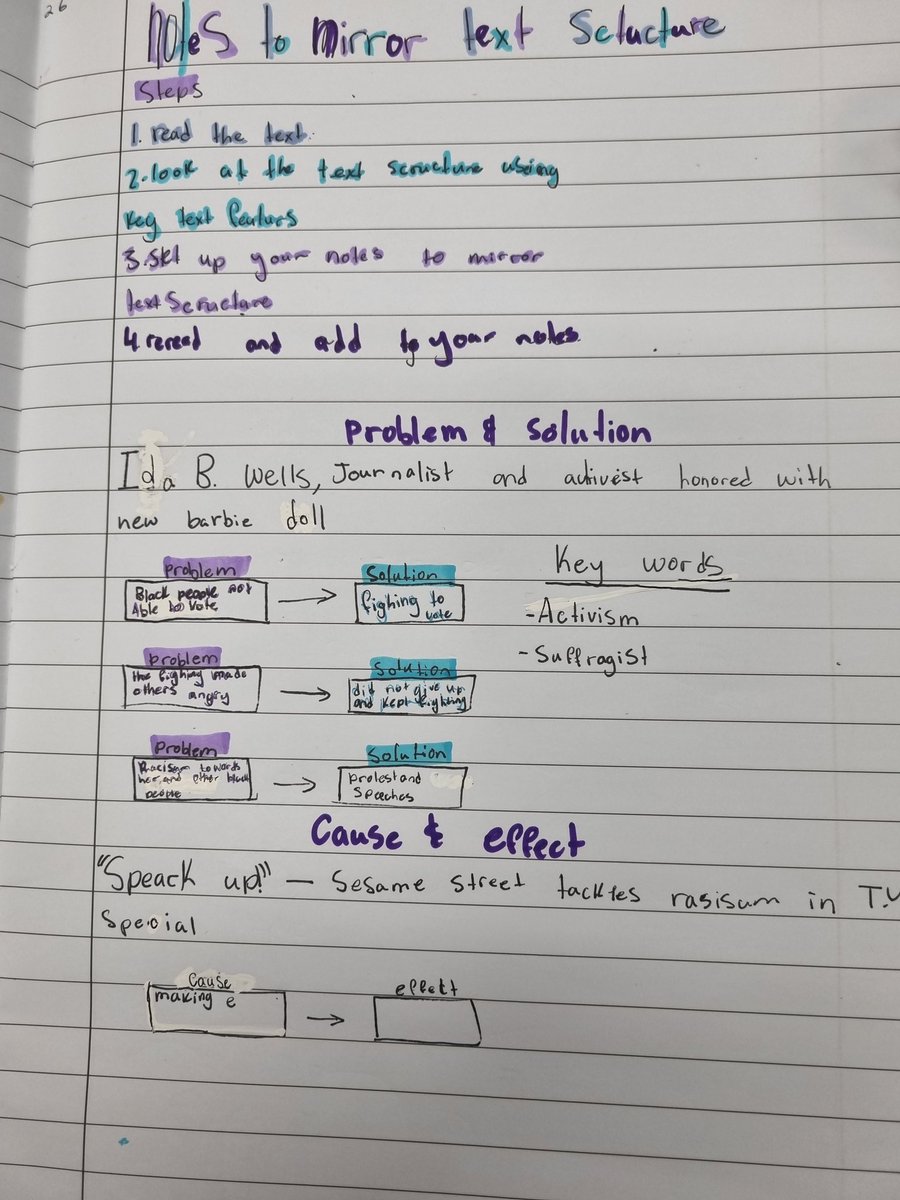 26
Notes to mirror text Sctucture
Steps
1. read the text.
2. look at the text scructure using
key text featurs
3. Set up your notes to mirror
text Scructure
4. reread and add to your notes
Problem & Solution
Ida B. Wells, Journalist and activest honored with
new barbie doll
Problem
Solution
Key words
Black people not
Able to vote
fighing to
vote
- Activism
- Suffragist
problem
Solution
the fighing made
others angry
did not give up
and kept fighting
Problem
Solution
Racism towards
her and other black
people
protest and
Speaches
Cause & effect
"Speack up!" — Sesame Street tackles rasisum in T.V
Special
Cause
effect
making e